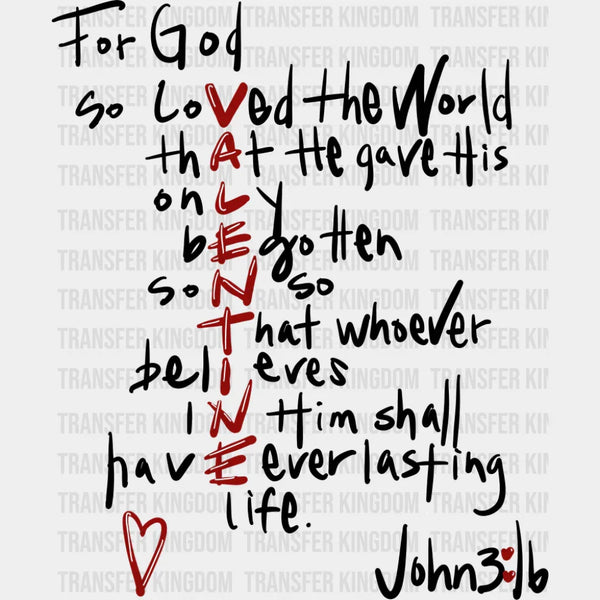 For God
so loVed the World
thAt He gave His
onLy
bEgotten
soN so
That whoever
belIeves
iN Him shall
havE everlasting
life.
John 3:16
TRANSFER KINGDOM